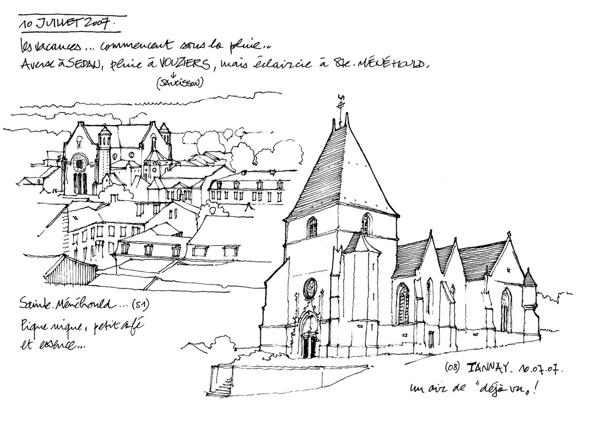 10 JUILLET 2007.
les vacances... commencent sous la pluie...
Averse à SEDAN, pluie à VOUZIERS, mais éclaircie à Ste. MÉNÉHOULD.
(SAUCISSON)
Sainte. Ménéhould... (51)
Pique nique, petit café
et essence...
(08) TANNAY. 10.07.07.
un air de "déjà vu"!